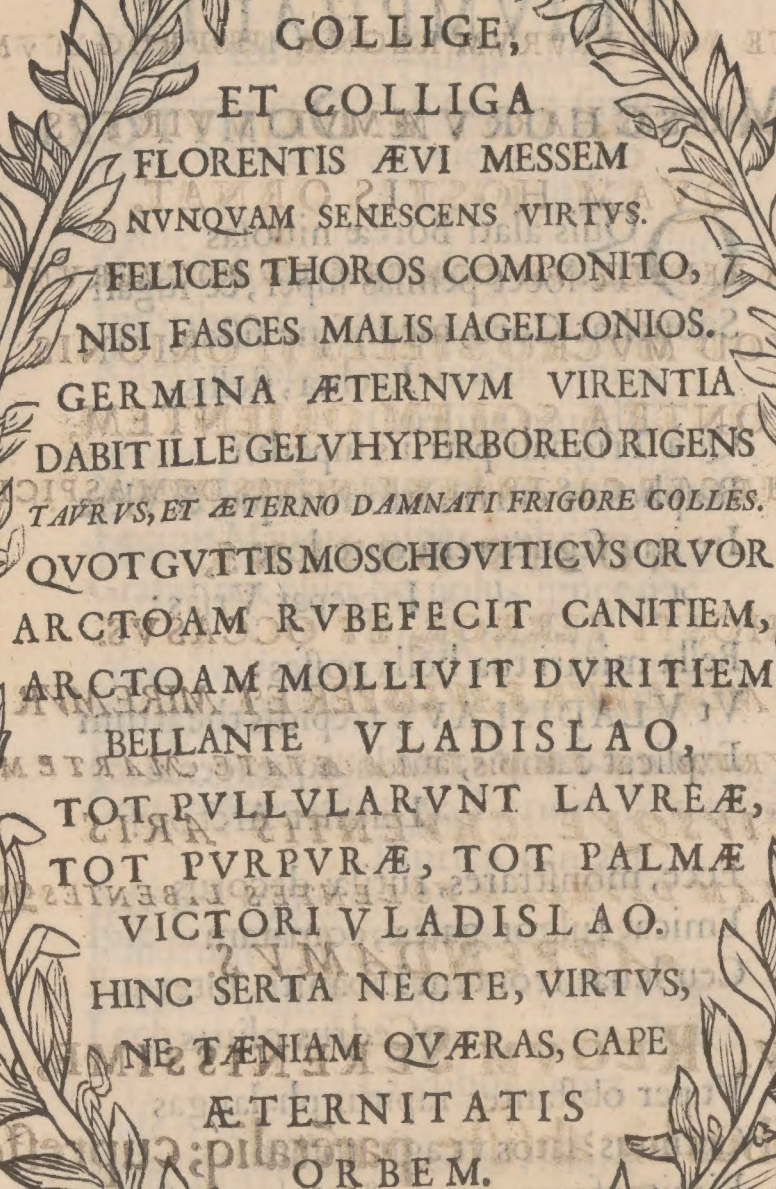 COLLIGE,
ET COLLIGA
FLORENTIS ÆVI MESSEM
NVNQVAM SENESCENS VIRTVS.
FELICES THOROS COMPONITO,
NISI FASCES MALIS IAGELLONIOS.
GERMINA ÆTERNVM VIRENTIA
DABIT ILLE GELV HYPERBOREO RIGENS
TAVRVS, ET ÆTERNO DAMNATI FRIGORE COLLES.
QVOT GVTTIS MOSCHOVITICVS CRVOR
ARCTOAM RVBEFECIT CANITIEM,
ARCTOAM MOLLIVIT DVRITIEM
BELLANTE VLADISLAO,
TOT PVLLVLARVNT LAVREÆ,
TOT PVRPVRÆ, TOT PALMÆ
VICTORI VLADISLAO.
HINC SERTA NECTE, VIRTVS,
NE TÆNIAM QVÆRAS, CAPE
ÆTERNITATIS
ORBEM.